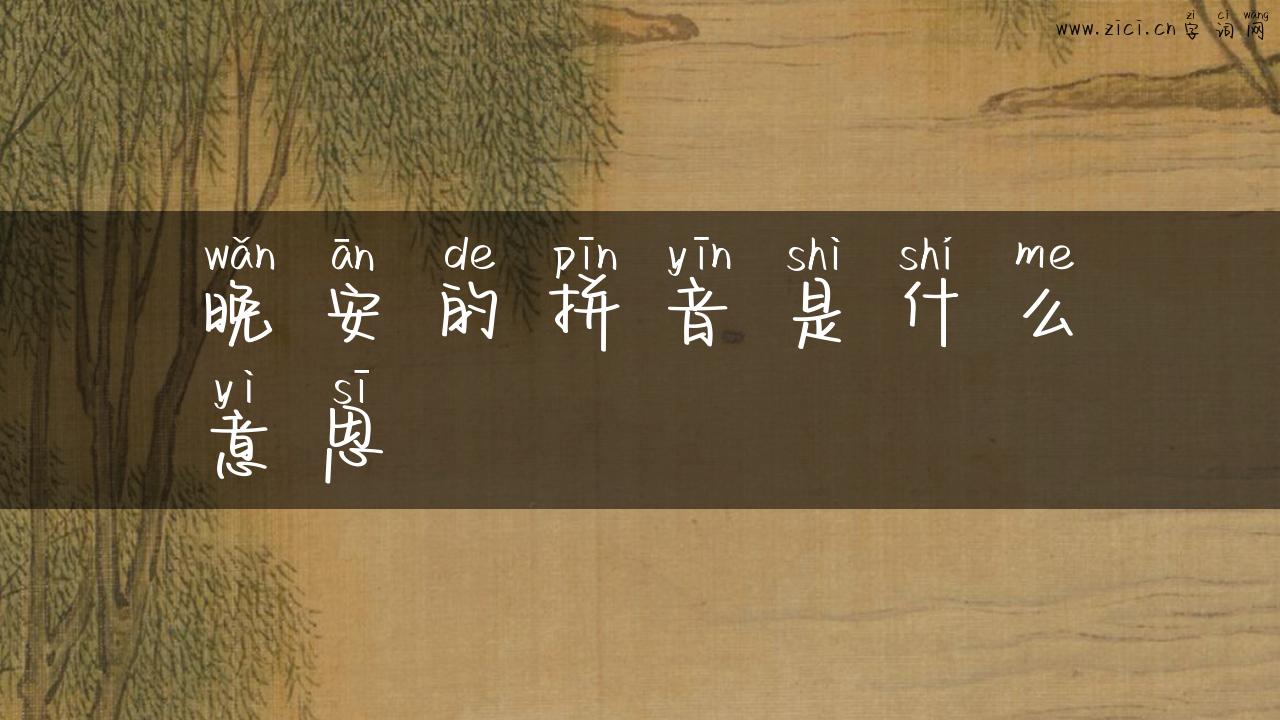 zì cí wǎng
www.zici.cn 字词网
wǎn ān de pīn yīn shì shí me
晚安的拼音是什么
yì sī
意思